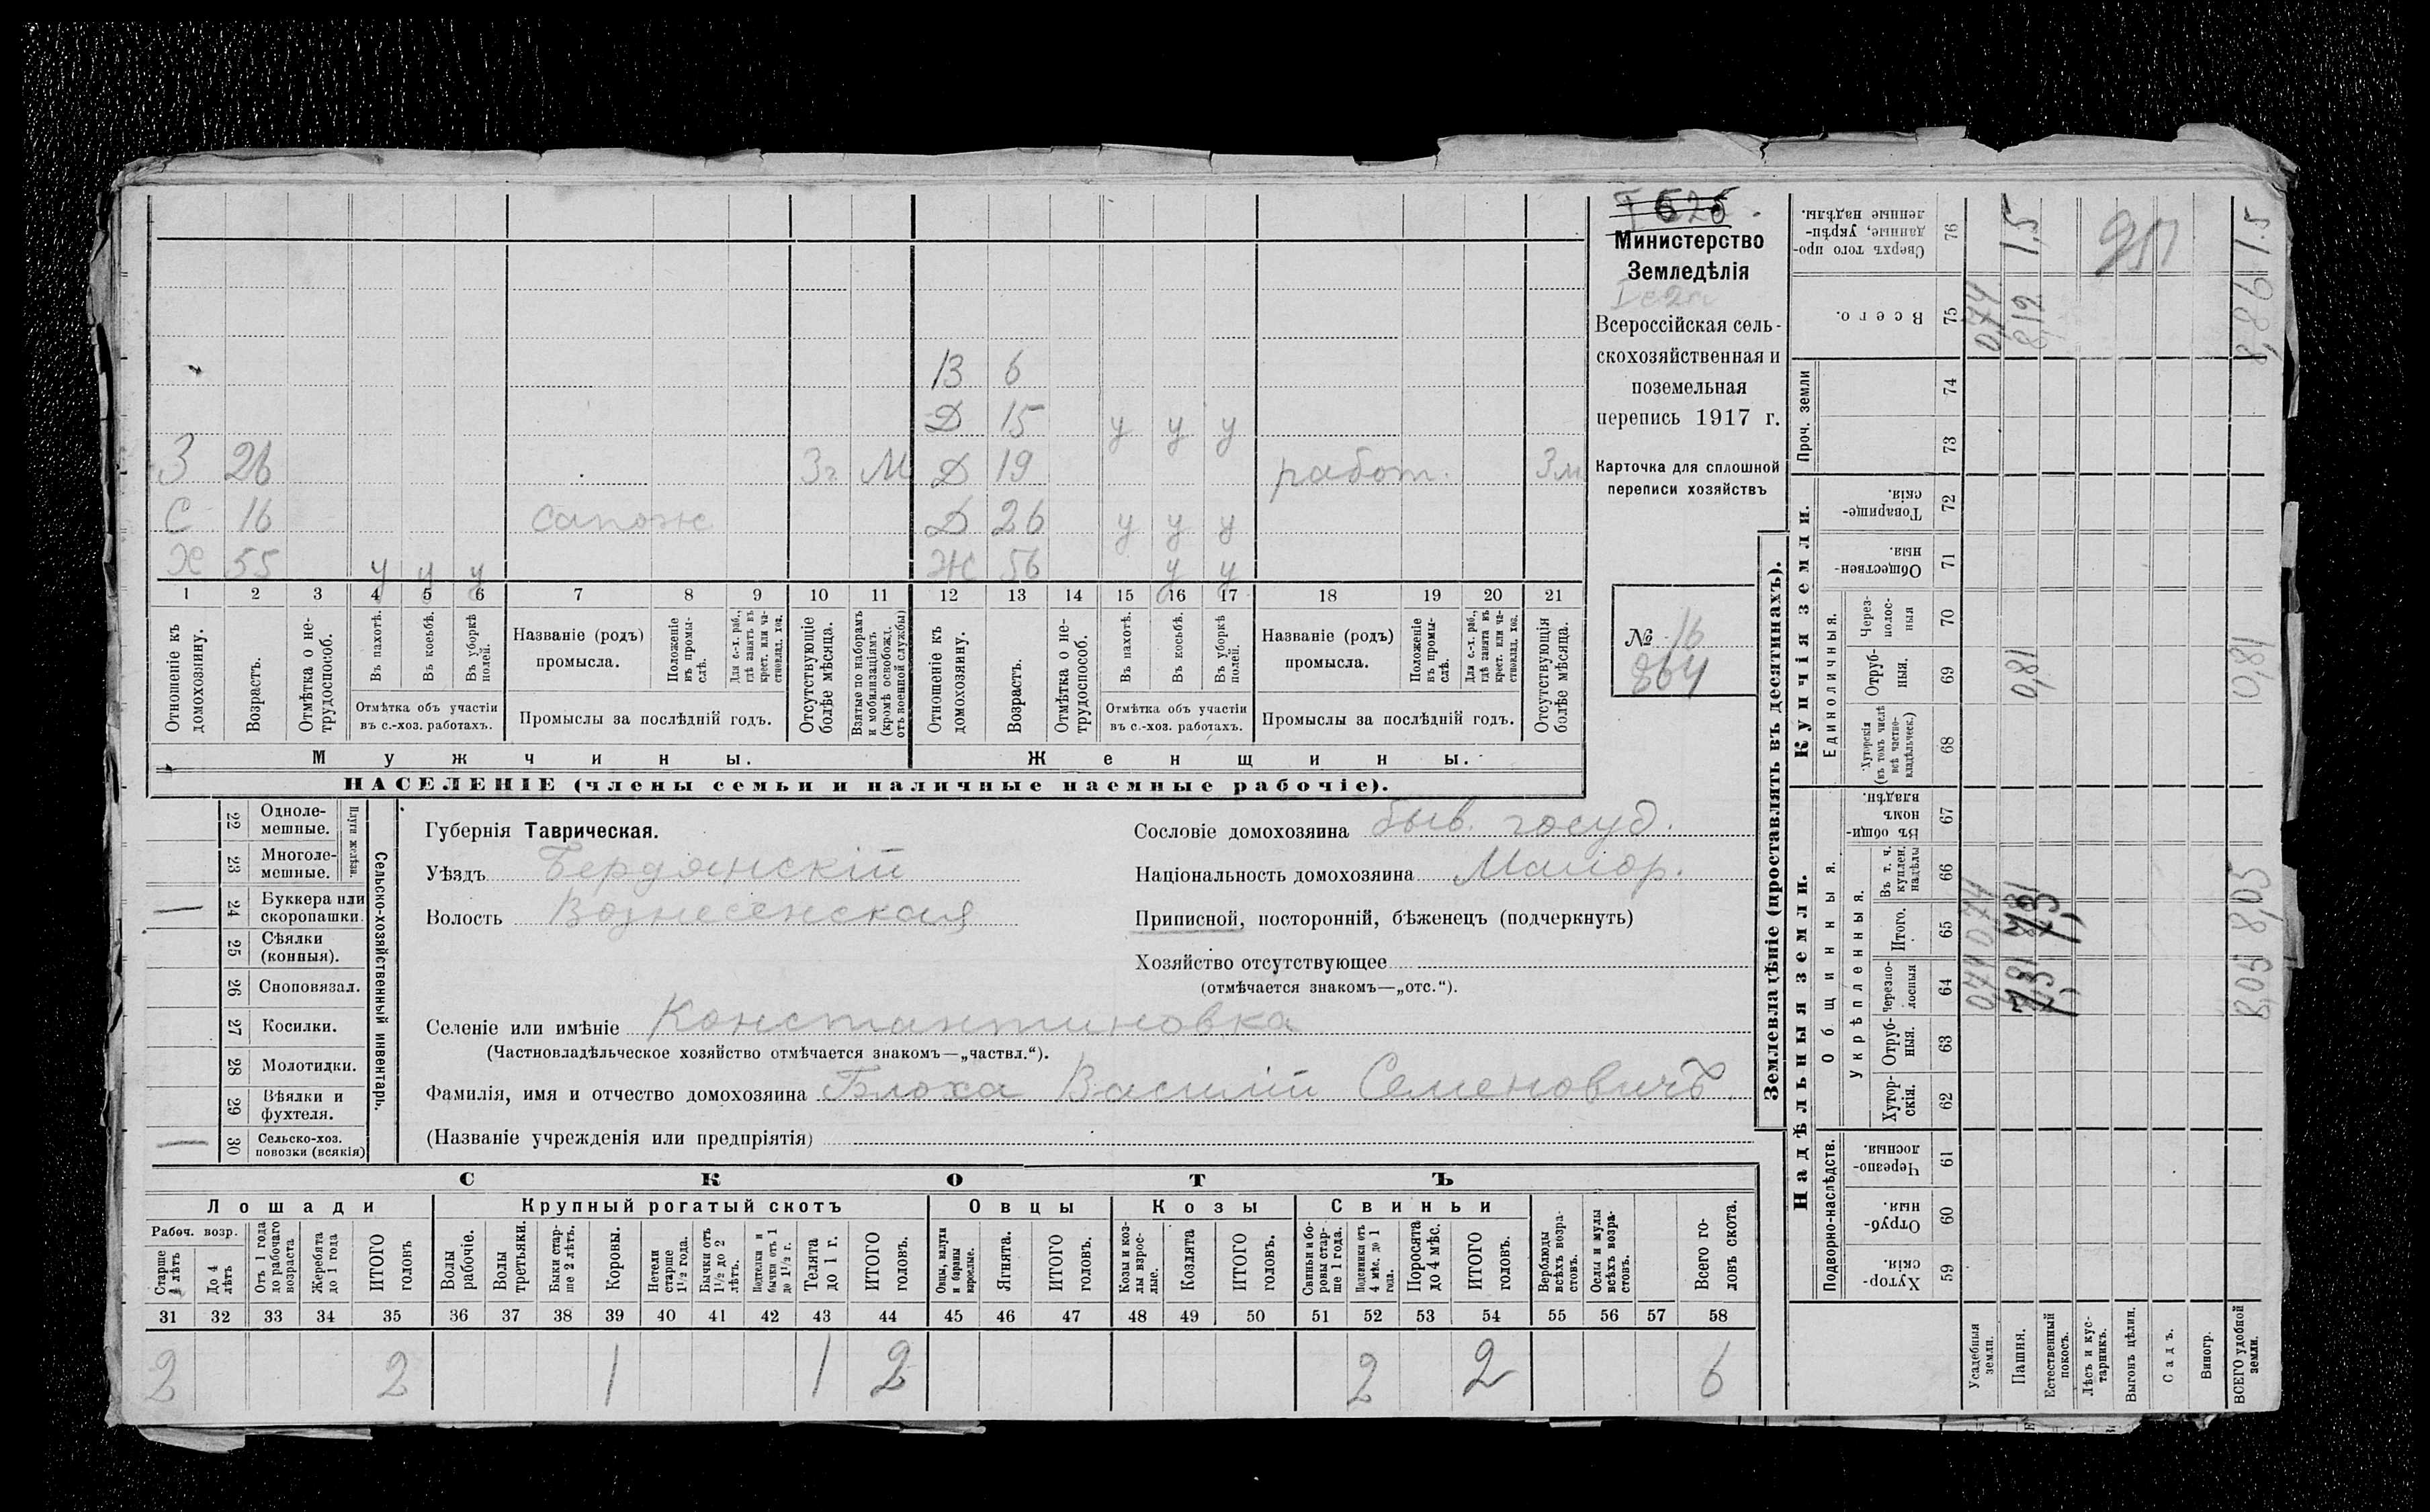 Министерство
Земледѣлія
Всероссійская сель-
скохозяйственная и
поземельная
перепись 1917 г.
Карточка для сплошной
переписи хозяйствъ
№ 16
864
В 6
Д 15 у у у
З 26 3г. М Д 19 работ. 3м
С 16 сапож Д 26 у у у
Х 55 у у у Ж 56 у у
1 2 3 4 5 6 7 8 9 10 11 12 13 14 15 16 17 18 19 20 21
Отношеніе къ домохозяину.
Возрастъ.
Отмѣтка о не-трудоспособ.
Въ пахотѣ.
Въ косьбѣ.
Въ уборкѣ полей.
Отмѣтка объ участіи въ с.-хоз. работахъ.
Названіе (родъ) промысла.
Положеніе въ промы-слѣ.
Для с.-х. раб., гдѣ занятъ въ крест. или ча-стновлад. хоз.
Промыслы за послѣдній годъ.
Отсутствующіе болѣе мѣсяца.
Взятые по наборамъ и мобилизаціямъ (кромѣ освобожд. отъ военной службы)
Отношеніе къ домохозяину.
Возрастъ.
Отмѣтка о не-трудоспособ.
Въ пахотѣ.
Въ косьбѣ.
Въ уборкѣ полей.
Отмѣтка объ участіи въ с.-хоз. работахъ.
Названіе (родъ) промысла.
Положеніе въ промы-слѣ.
Для с.-х. раб., гдѣ занята въ крест. или ча-стновлад. хоз.
Промыслы за послѣдній годъ.
Отсутствующія болѣе мѣсяца.
Мужчины. Женщины.
НАСЕЛЕНІЕ (члены семьи и наличные наемные рабочіе).
Сельско-хозяйственный инвентарь.
Плуги желѣзн.
22 Одноле-мешные.
23 Многоле-мешные.
— 24 Буккера или скоропашки.
25 Сѣялки (конныя).
26 Сноповязал.
27 Косилки.
28 Молотилки.
29 Вѣялки и фухтеля.
— 30 Сельско-хоз. повозки (всякія)
Губернія Таврическая.
Уѣздъ Бердянскій
Волость Вознесенская
Сословіе домохозяина быв. госуд.
Національность домохозяина Малор.
Приписной, посторонній, бѣженецъ (подчеркнуть)
Хозяйство отсутствующее
(отмѣчается знакомъ—„отс.“).
Селеніе или имѣніе Константиновка
(Частновладѣльческое хозяйство отмѣчается знакомъ—„частвл.“).
Фамилія, имя и отчество домохозяина Блоха Василій Семеновичъ.
(Названіе учрежденія или предпріятія)
СКОТЪ
Лошади Крупный рогатый скотъ Овцы Козы Свиньи
Рабоч. возр.
Старше 4 лѣтъ
До 4 лѣтъ
Отъ 1 года до рабочаго возраста
Жеребята до 1 года
ИТОГО головъ
Волы рабочіе.
Волы третьяки.
Быки стар-ше 2 лѣтъ.
Коровы.
Нетели старше 1½ года.
Бычки отъ 1½ до 2 лѣтъ.
Подтелки и бычки отъ 1 до 1½ г.
Телята до 1 г.
ИТОГО головъ.
Овцы, валухи и бараны взрослые.
Ягнята.
ИТОГО головъ.
Козы и коз-лы взрос-лые.
Козлята
ИТОГО головъ.
Свиньи и бо-ровы стар-ше 1 года.
Подсвинки отъ 4 мѣс. до 1 года.
Поросята до 4 мѣс.
ИТОГО головъ.
Верблюды всѣхъ возра-стовъ.
Ослы и мулы всѣхъ возра-стовъ.
Всего го-ловъ скота.
31 32 33 34 35 36 37 38 39 40 41 42 43 44 45 46 47 48 49 50 51 52 53 54 55 56 57 58
2 2 1 1 2 2 2 6
Землевладѣніе (проставлять въ десятинахъ).
Надѣльныя земли. Купчія земли. Проч. земли
Подворно-наслѣдств.
Общинныя.
Укрѣпленныя.
Единоличныя.
Хутор-скія. 59
Отруб-ныя. 60
Черезпо-лосныя. 61
Хутор-скія. 62
Отруб-ныя. 63
Черезпо-лосныя 64
Итого. 65
Въ т. ч. куплен. надѣлы 66
Въ общин-номъ владѣн. 67
Хуторскія (въ томъ числѣ всѣ частно-владѣльческ.) 68
Отруб-ныя. 69
Через-полос-ныя 70
Обществен-ныя. 71
Товарище-скія. 72
73
74
Всего. 75
Сверхъ того про-данные, укрѣп-ленные надѣлы. 76
Усадебныя земли. 0,74 0,74 0,74
Пашня. 7,31 7,31 0,81 8,12 1,5
Естественный покосъ.
Лѣсъ и кус-тарникъ.
Выгонъ цѣлин.
Садъ.
Виногр.
ВСЕГО удобной земли. 8,05 8,05 0,81 8,86 1.5